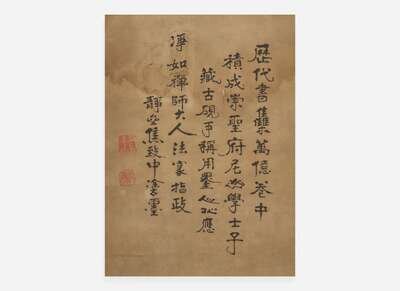 歷代書集萬億卷中
積成崇聖府尼山學士子
藏古硯手稱用鑿心以應
淨如禪師大人法家指政
靜安焦致中塗墨